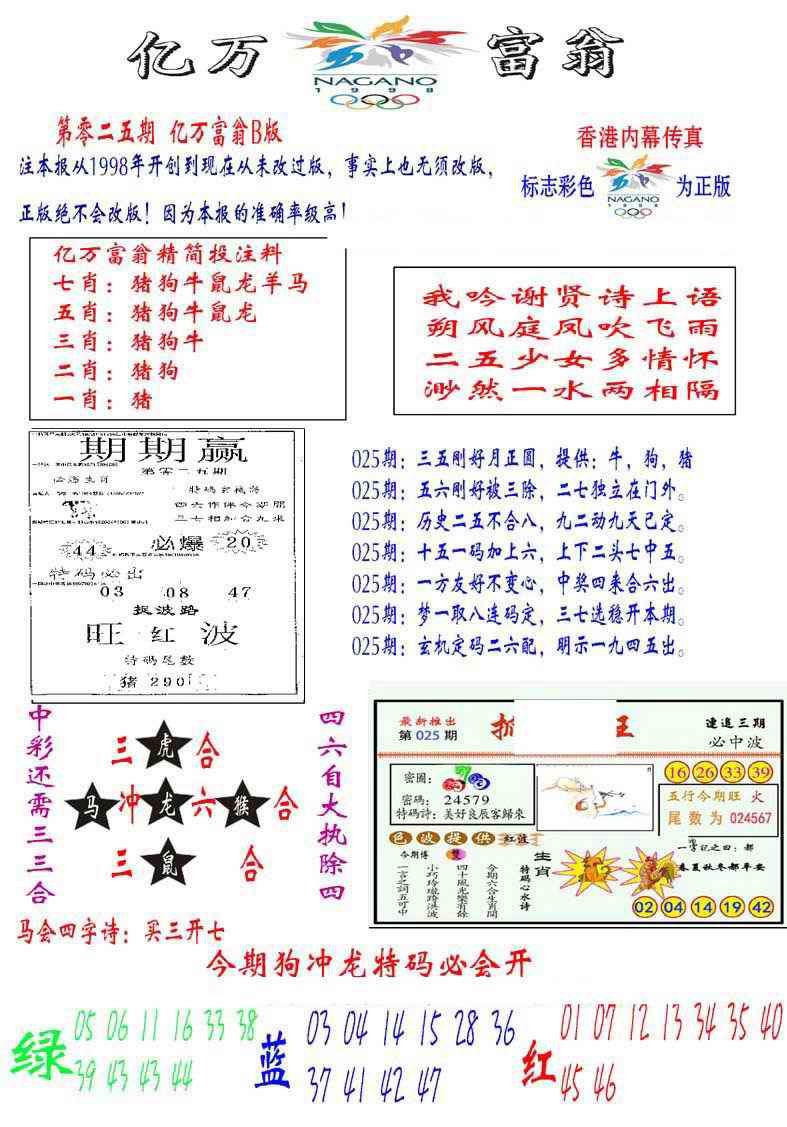 亿万
富翁
NAGANO
1998
第零二五期 亿万富翁B版
香港内幕传真
注本报从1998年开创到现在从未改过版，事实上也无须改版，
标志彩色
NAGANO
1998
为正版
正版绝不会改版！因为本报的准确率级高!
亿万富翁精简投注料
七肖：猪狗牛鼠龙羊马
五肖：猪狗牛鼠龙
三肖：猪狗牛
二肖：猪狗
一肖：猪
我吟谢贤诗上语
朔风庭凤吹飞雨
二五少女多情怀
渺然一水两相隔
期期赢
第零二五期
必爆
44
20
特码必出
03 08 47
捉波路
旺红波
特码尾数
猪290
025期：三五刚好月正圆，提供：牛，狗，猪
025期：五六刚好被三除，二七独立在门外。
025期：历史二五不合八，九二动九天已定。
025期：十五一码加上六，上下二头七中五。
025期：一方友好不变心，中奖四来合六出。
025期：梦一取八连码定，三七选稳开本期。
025期：玄机定码二六配，明示一九四五出。
中彩还需三三合
三 虎 合
马 冲 龙 六 猴 合
三 鼠 合
四六自大执除四
最新推出
第025期
王
连追三期
必中波
密图：
密码：24579
特码诗：美好良辰客歸來
16 26 33 39
五行今期旺 火
尾数为 024567
色波提供 红波
今期博
雙
一言之詞五可中
小巧玲瓏琦洪波
四十風光樂有餘
今期六合生肖開
生肖
特码心水诗
一字记之曰：都
春夏秋冬都平安
02 04 14 19 42
马会四字诗：买三开七
今期狗冲龙特码必会开
绿
05 06 11 16 33 38
39 43 43 44
蓝
03 04 14 15 28 36
37 41 42 47
红
01 07 12 13 34 35 40
45 46